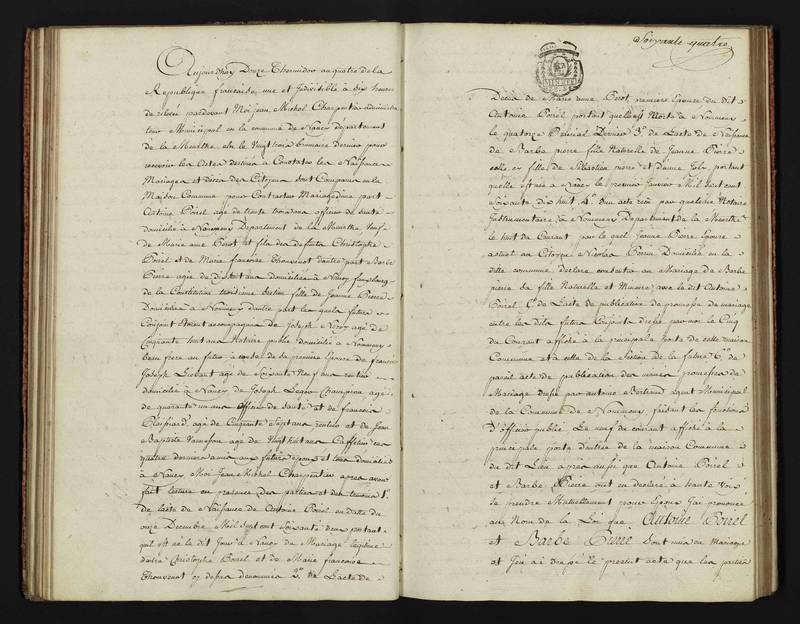 Aujourd'huy Douze Thermidor an quatre de la
Republique francaise, une et Indivisible à six heures
de relevée pardevant Moi jean Michel Charpentier administra
teur Municipal en la commune de Nancy Département
de la Meurthe elu le Vingt trois brumaire dernier pour
recevoir les Actes destinés à Constater les Naissances
Mariages et décès des Citoyens sont Comparus en la
Maison Commune pour Contracter Mariage d'une part
Antoine Poirel agé de trente trois ans officier de santé
domicilié à Nommeny Departement de la Meurthe, Veuf
de Marie anne Perot et fils des defunts Christophe
Poirel et de Marie francoise Thouvenot d'autre part Barbe
Pierre agée de dix sept ans domiciliée à Nancy fauxbourg
de la Constitution troisieme Section fille de Jeanne Pierre
Domiciliée à Nommeny d'autre part lesquels futurs
Conjoint étoient accompagnés de Joseph Viry agé de
Cinquante huit ans Notaire public domicilié à Nommeny
beau frere au futur à cause de sa premiere Epouse de francois
Joseph agé de Soixante Neuf ans rentier
domicilié à Nancy de Joseph Leger Champion agé
de quarante un ans officier de Santé et de francois
agé de Cinquante Sept ans rentier et de Jean
Baptiste agé de Vingt huit ans Caffetier ces
quatre derniers amis aux futurs époux et tous domiciliés
à Nancy, Moi Jean Michel Charpentier apres avoir
fait lecture en presence des parties et des temoins 1.°
de l'acte de Naissance de Antoine Poirel en datte du
onze Decembre Mil Sept cent Soixante deux portant
qu'il est né le dit jour à Nancy du Mariage légitime
d'entre Christophe Poirel et de Marie francoise
Thouvenot cy dessus denommés 2.° de l'acte de
Soixante quatre
Décès de Marie anne Perot, premiere Epouse du dit
Antoine Poirel portant qu'elle est Morte à Nommeny
le quatorze Prairial Dernier 3.° de l'acte de Naissance
de Barbe pierre fille Naturelle de Jeanne Pierre
celle cy fille de Sébastien pierre et d'anne Joly portant
qu'elle est née à Nancy le premier Janvier Mil Sept cent
Soixante Dix huit 4.° d'un acte recu par quelche Notaire
Instrumentaire à Nommeny Departement de la Meurthe
le huit du Courant par le quel Jeanne Pierre Epouse
actuel au Citoyen Nicolas Domicilié en la
ditte commune declare consentir au Mariage de Barbe
pierre sa fille Naturelle et Mineure avec le dit Antoine
Poirel 5.° de l'acte de publication de promesse de mariage
entre les dits futurs Conjoints dressé par moi le Cinq
du Courant affiché à la principale porte de cette maison
Commune et à celle de la Section de la future 6.° de
pareil acte de publication des memes promesses de
Mariage dressé par antoine Bertrand agent Municipal
de la Commune de Nommeny, faisant les fonctions
D'officier public le neuf du courant affiché à la
principale porte d'entrée de la maison Commune
du dit Lieu apres aussi que Antoine Poirel
et Barbe Pierre ont eu declaré à haute voix
se prendre Mutuellement pour Epoux j'ai prononcé
au Nom de la Loi que Antoine Poirel
et Barbe Pierre sont unis en Mariage
et j'en ai dressé le présent acte que les parties